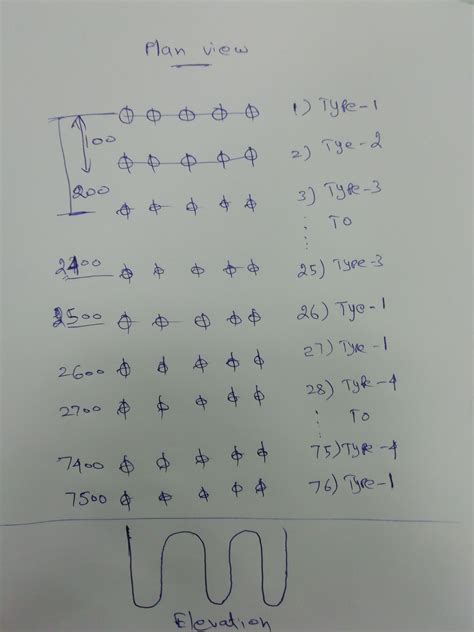 Plan view
1) Type-1
100
2) Tye-2
200
3) Type-3
To
2400 25) Type-3
2500 26) Tye-1
2600 27) Type-1
2700 28) Type-4
To
7400 75) Type-4
7500 76) Type-1
Elevation